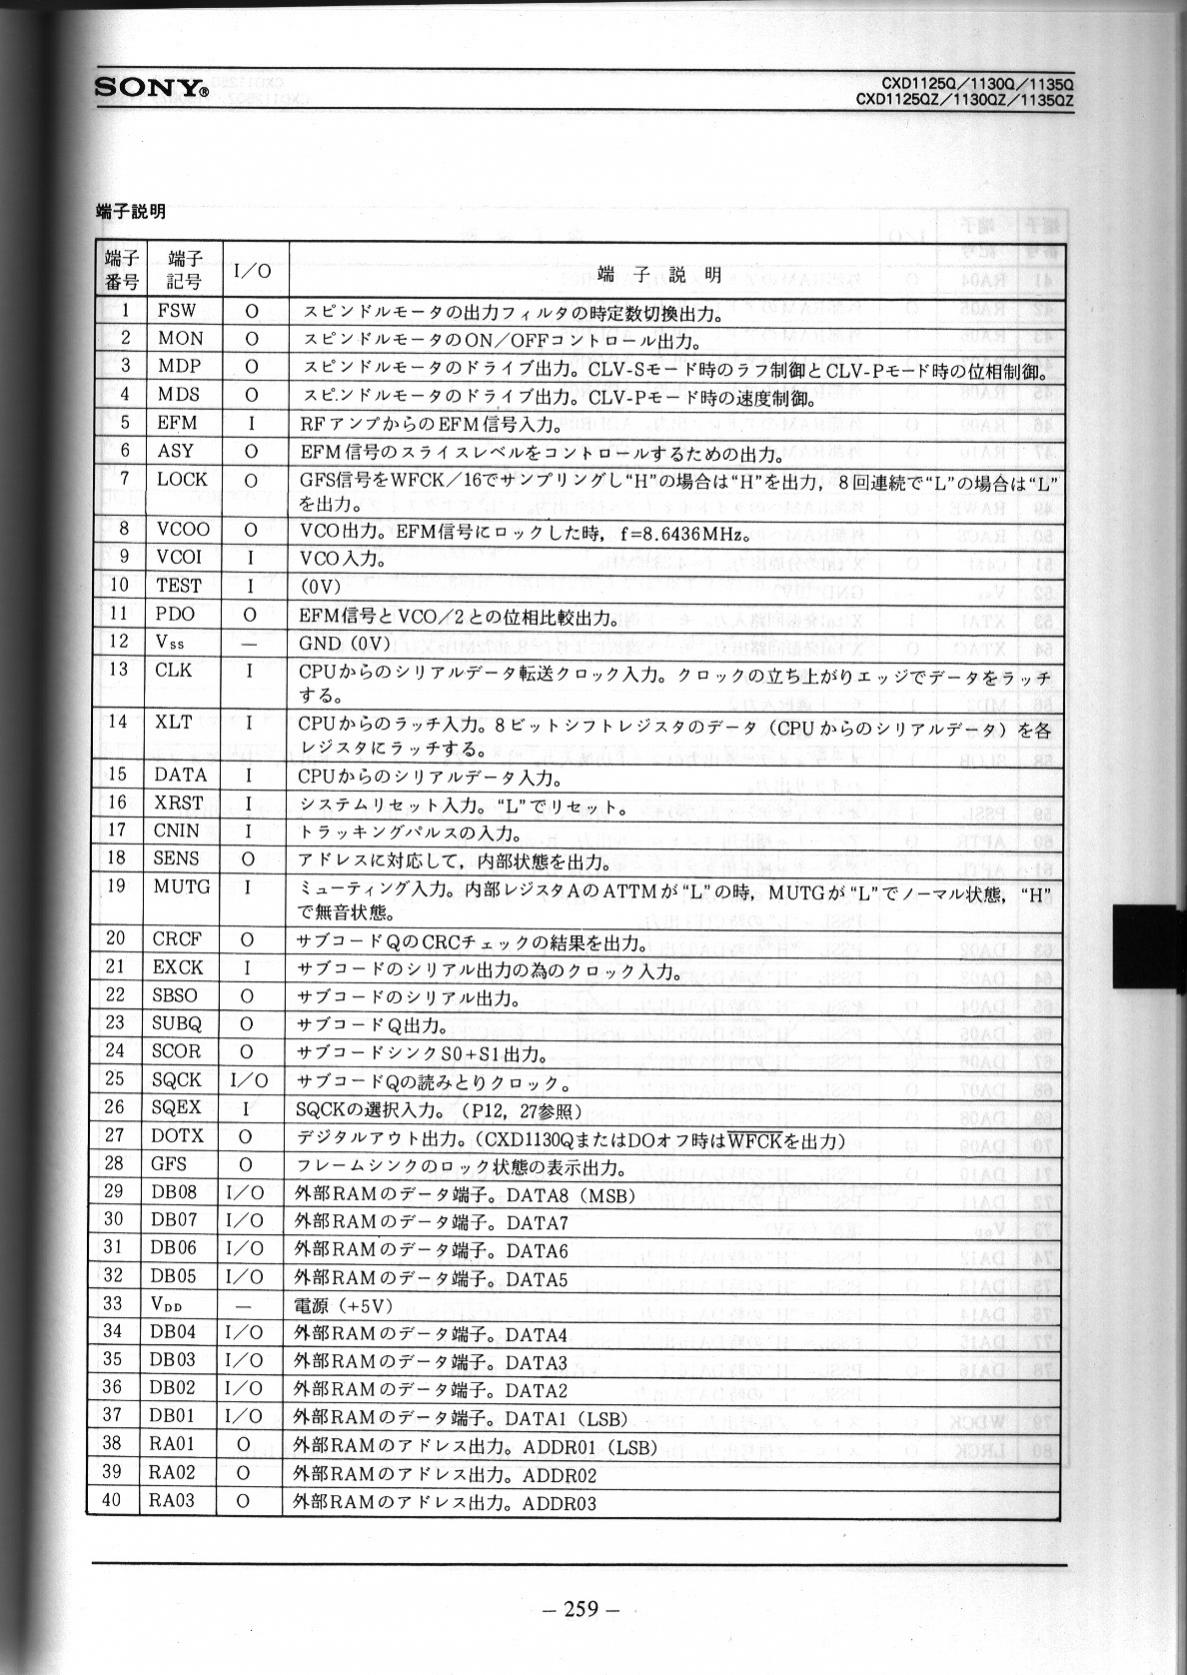 SONY®
CXD1125Q／1130Q／1135Q
CXD1125QZ／1130QZ／1135QZ
端子説明
端子番号 端子記号 I／O 端 子 説 明
1 FSW O スピンドルモータの出力フィルタの時定数切換出力。
2 MON O スピンドルモータのON／OFFコントロール出力。
3 MDP O スピンドルモータのドライブ出力。CLV-Sモード時のラフ制御とCLV-Pモード時の位相制御。
4 MDS O スピンドルモータのドライブ出力。CLV-Pモード時の速度制御。
5 EFM I RFアンプからのEFM信号入力。
6 ASY O EFM信号のスライスレベルをコントロールするための出力。
7 LOCK O GFS信号をWFCK／16でサンプリングし“H”の場合は“H”を出力，8回連続で“L”の場合は“L”
を出力。
8 VCOO O VCO出力。EFM信号にロックした時，f=8.6436MHz。
9 VCOI I VCO入力。
10 TEST I (0V)
11 PDO O EFM信号とVCO／2との位相比較出力。
12 Vss — GND (0V)
13 CLK I CPUからのシリアルデータ転送クロック入力。クロックの立ち上がりエッジでデータをラッチ
する。
14 XLT I CPUからのラッチ入力。8ビットシフトレジスタのデータ（CPUからのシリアルデータ）を各
レジスタにラッチする。
15 DATA I CPUからのシリアルデータ入力。
16 XRST I システムリセット入力。“L”でリセット。
17 CNIN I トラッキングパルスの入力。
18 SENS O アドレスに対応して，内部状態を出力。
19 MUTG I ミューティング入力。内部レジスタAのATTMが“L”の時，MUTGが“L”でノーマル状態，“H”
で無音状態。
20 CRCF O サブコードQのCRCチェックの結果を出力。
21 EXCK I サブコードのシリアル出力の為のクロック入力。
22 SBSO O サブコードのシリアル出力。
23 SUBQ O サブコードQ出力。
24 SCOR O サブコードシンクS0+S1出力。
25 SQCK I／O サブコードQの読みとりクロック。
26 SQEX I SQCKの選択入力。（P12，27参照）
27 DOTX O デジタルアウト出力。（CXD1130QまたはDOオフ時はWFCKを出力）
28 GFS O フレームシンクのロック状態の表示出力。
29 DB08 I／O 外部RAMのデータ端子。DATA8（MSB）
30 DB07 I／O 外部RAMのデータ端子。DATA7
31 DB06 I／O 外部RAMのデータ端子。DATA6
32 DB05 I／O 外部RAMのデータ端子。DATA5
33 VDD — 電源（+5V）
34 DB04 I／O 外部RAMのデータ端子。DATA4
35 DB03 I／O 外部RAMのデータ端子。DATA3
36 DB02 I／O 外部RAMのデータ端子。DATA2
37 DB01 I／O 外部RAMのデータ端子。DATA1（LSB）
38 RA01 O 外部RAMのアドレス出力。ADDR01（LSB）
39 RA02 O 外部RAMのアドレス出力。ADDR02
40 RA03 O 外部RAMのアドレス出力。ADDR03
— 259 —